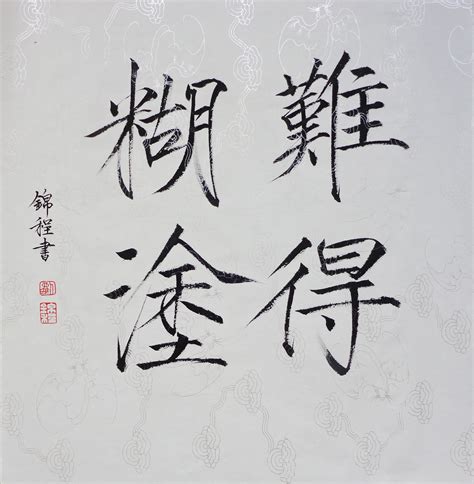 難得
糊塗
錦程書